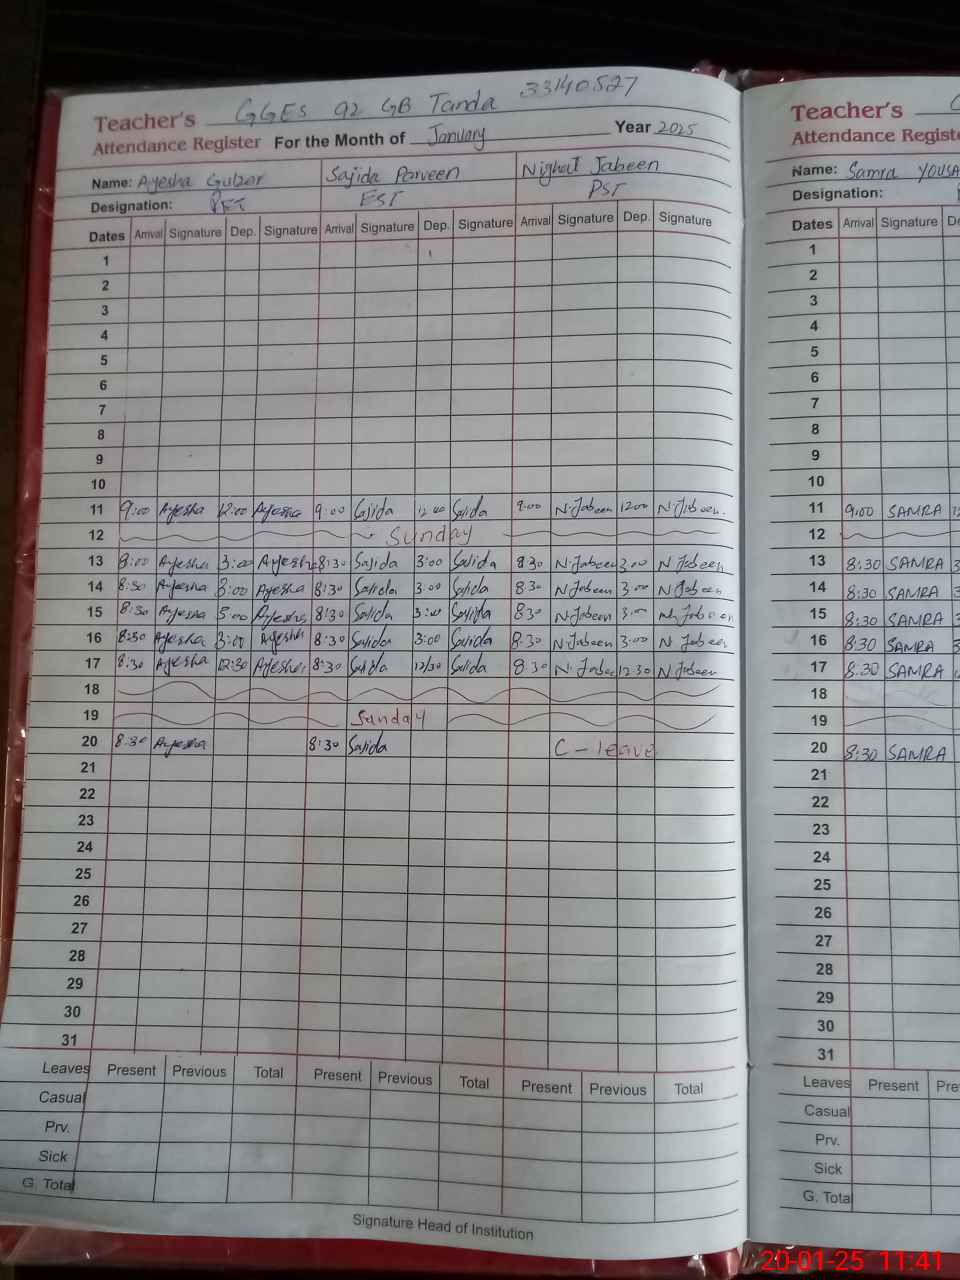 Teacher's GGES 92 GB Tanda 33140527
Attendance Register For the Month of January Year 2025
Name: Ayesha Gulzar Sajida Parveen Nighat Jabeen
Designation: EST PST
Dates Arrival Signature Dep. Signature Arrival Signature Dep. Signature Arrival Signature Dep. Signature
1
2
3
4
5
6
7
8
9
10
11 9:00 Ayesha 12:00 Ayesha 9:00 Sajida 12:00 Sajida 9:00 N.Jabeen 12:00 N.Jabeen
12 Sunday
13 8:00 Ayesha 3:00 Ayesha 8:30 Sajida 3:00 Sajida 8:30 N.Jabeen 3:00 N Jabeen
14 8:30 Ayesha 3:00 Ayesha 8:30 Sajida 3:00 Sajida 8:30 N.Jabeen 3:00 N Jabeen
15 8:30 Ayesha 3:00 Ayesha 8:30 Sajida 3:00 Sajida 8:30 N.Jabeen 3:00 N.Jabeen
16 8:30 Ayesha 3:00 Ayesha 8:30 Sajida 3:00 Sajida 8:30 N.Jabeen 3:00 N Jabeen
17 8:30 Ayesha 12:30 Ayesha 8:30 Sajida 12:30 Sajida 8:30 N.Jabeen 12:30 N.Jabeen
18
19 Sunday
20 8:30 Ayesha 8:30 Sajida C-leave
21
22
23
24
25
26
27
28
29
30
31
Leaves Present Previous Total Present Previous Total Present Previous Total
Casual
Prv.
Sick
G. Total
Signature Head of Institution
Teacher's
Attendance
Name: Samra
Designation:
Dates Arrival Signature
1
2
3
4
5
6
7
8
9
10
11 9:00 SAMRA
12
13 8:30 SAMRA
14 8:30 SAMRA
15 8:30 SAMRA
16 8:30 SAMRA
17 8:30 SAMRA
18
19
20 8:30 SAMRA
21
22
23
24
25
26
27
28
29
30
31
Leaves Present
Casual
Prv.
Sick
G. Total
20-01-25 11:41